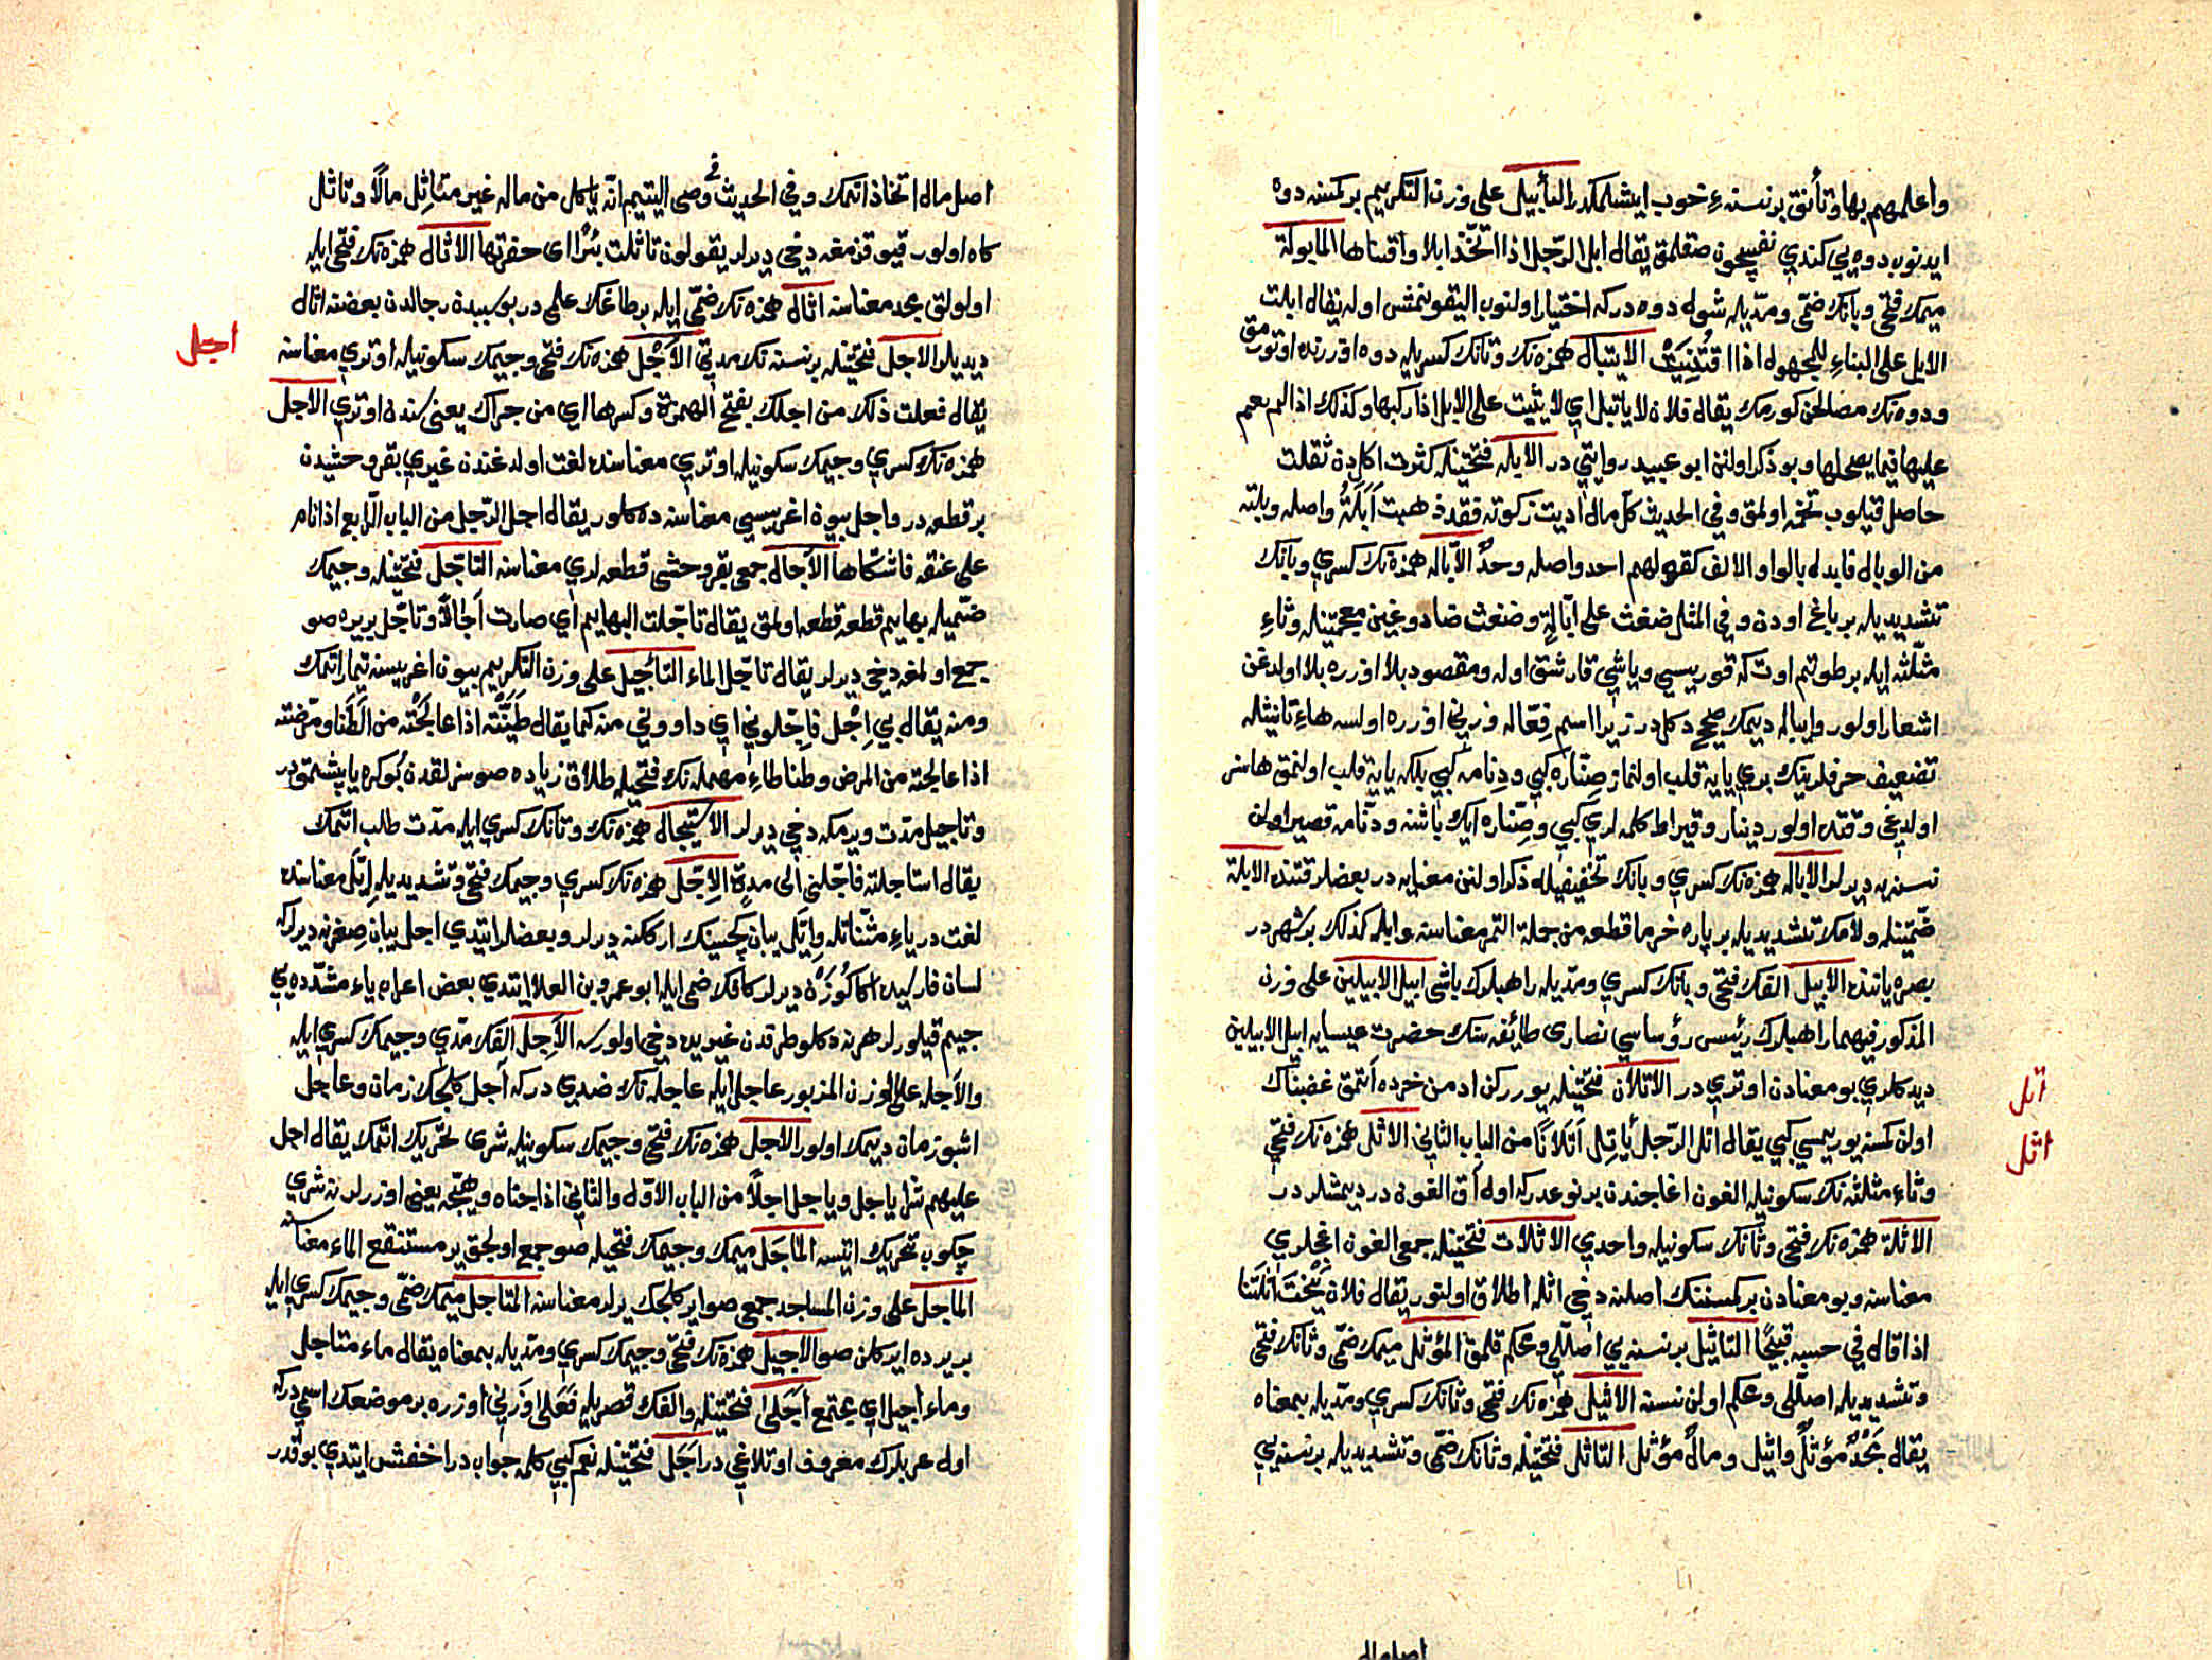 واعلمهم بها وتأنق بر نسنه ء خوب ايشلمكدر التأبيل على وزن التكريم بر كمسنه دوه
ايدنوب دوه يي كندي نفسيچون صقلمق يقال ابل الرّجل اذا اتّخذ ابلا واقتناها المابولة
ميمك فتحي وبانك ضمّى ومدّيله شول دوه دركه اختيار اولنوب اليقونمش اوله يقال ابلت
الابل على البناءِ للمجهول اذا اقتُنِيَتْ الايتبال همزه نك وتانك كسريله دوه اوزرنده اوتورمق
ودوه نك مصالحن كورمك يقال فلان لا ياتبل اي لا يثبت على الابل اذا ركبها وكذلك اذا لم يقم
عليها فيما يصلحها وبو ذكر اولنن ابو عبيد روايتي در الابله فتحتينله كثرت اكل دن ثقلت
حاصل قيلوب تخمه اولمق وفي الحديث كل مال اديت زكوته فقد ذهبت اَبَلَتُهُ واصله وبلته
من الوبال فابدل بالواو الالف كقولهم احد واصله وحدٌ الابّاله همزه نك كسري وبانك
تشديديله بر باغ اودن وفي المثل ضغث على اباّلةٍ وضغث ضاد وغين معجمتينله وثاءِ
مثلّثه ايله بر طوتم اوت كه قوريسي وياشي قارشق اوله ومقصود بلا اوزره بلا اولدغن
اشعار اولور وايباله ديمك صحيح دكل در زيرا اسم فِعّاله وزني اوزره اولسه هاءِ تانيثله
تضعيف حرفلرينك بري يايه قلب اولنماز صِنّاره كبي ودِنّامه كبي بلكه يايه قلب اولنمق هاسز
اولديغى وقتده اولور دينار وقيراط كلمه لري كبي وصِنّاره ايك باشنه ودنّامه قصير اولن
نسنه يه ديرلر الاباله همزه نك كسري وبانك تخفيفيله ذكر اولنن معنايه در بعضلر قتنده الابلة
ضمّتينله ولامك تشديديله بر پاره خرما قطعه من جملة التمر معناسنه وابله كذلك بر شهر در
بصره ياننده الابيل الفك فتحى وبانك كسري ومدّيله راهبلرك باشى ابيل الابيلين على وزن
المذكور فيهما راهبلرك رئيس رؤساسي نصارى طائفه سنك حضرت عيسايه ابيل الابيلين
ديدكلري بو معنادن اوتري در الاتلان فتحتينله يورركن ادمن خرده آتمق غضبناك
اولن كمسنه يوريمسي كبي يقال اتل الرّجل يأتِل اَتَلاَنًا من الباب الثاني الاثل همزه نك فتحي
وثاءِ مثلثه نك سكونيله الغون اغاجندن بر نوعدركه اول اق الغون در ديمشلر در
الاثلة همزه نك فتحي وثانك سكونيله واحدي الاثلات فتحتينله جمعى الغون اغجلري
معناسنه وبو معنادن بر كمسنه نك اصلنه دخى اثله اطلاق اولنور يقال فلان يَنْحِتُ اَثْلَتَنا
اذا قال في حسبه قبيحًا التاثيل بر نسنه يي اصللي ومحكم قلمق المؤثل ميمك ضمّى وثانك فتحي
وتشديديله اصللى ومحكم اولن نسنه الاثيل همزه نك فتحى وثانك كسري ومدّيله بمعناه
يقال مَجْدٌ مؤثّلٌ واثيل ومالٌ مؤثل التاثل فتحتينله وثانك ضمّى وتشديديله بر نسنه يي
اتل
اثل
اصل مال
اصل مال اتخاذ اتمك وفي الحديث في وصى اليتيم انّه ياكل من ماله غير متاثِل مالاً وتاثل
كاه اولور قيو قزمغه دخى ديرلر يقولون تاثلت بئرًا اى حفرتها الاثال همزه نك فتحى ايله
اولولق مجد معناسنه اثال همزه نك ضمّى ايله بر طاغك علمى در بو سببدن رجالدن بعضنه اثال
ديديلر الاجل فتحتينله بر نسنه نك مدتى الاَجْل همزه نك فتحى وجيمك سكونيله اوتري معناسنه
يقال فعلت ذلك من اجلك بفتح الهمزة وكسرها اي من جراك يعنى سندن اوتري الاجل
همزه نك كسري وجيمك سكونيله اوتري معناسنده لغت اولدغندن غيري بقر وحشيدن
بر قطعه در واجل بيون اغريسى معناسنه ده كلور يقال اجل الرّجل من الباب الرّابع اذا نام
على عنقه فاشتكاها الآجال جمعى بقر وحشى قطعه لري معناسنه التاجّل فتحتينله وجيمك
ضمّيله بهايم قطعه قطعه اولمق يقال تاجّلت البهايم اي صارت اَجالاً وتاجّل بر يره صو
جمع اولمغه دخى ديرلر يقال تاجّل الماء التأجيل على وزن التكريم بيون اغريسنه تيمار اتمك
ومنه يقال بي اِجْل فاَجّلوني اي داووني منه كما يقال طنّيته اذا عالجته من الطنا ومرّضته
اذا عالجته من المرض وطنا طاءِ مهمله نك فتحيله طلاق زياده صوسزلقدن كوكره ياپشمق در
وتاجيل مدّت ويرمكه دخى ديرلر الاستيجال همزه نك وتانك كسري ايله مدّت طلب اتمك
يقال استاجلته فاجّلني الى مدةٍ الاِجّل همزه نك كسري وجيمك فتحى وتشديديله اِيّل معناسنده
لغت در ياءِ مثنّاتله وايّل يبان كچيسنك اركنه ديرلر وبعضلر ايتدي اجل يبان صغرنه ديرلركه
لسان فارسيده اكا كَوَزْن ديرلر كافك ضمى ايله ابو عمرو بن العلا ايتدي بعض اعراب ياءِ مشدّده يي
جيم قيلورلر هر نه دكلو طرفدن غيريده دخى اولورسه الآجل الفك مدّي وجيمك كسري ايله
والاَجله على الوزن المزبور عاجل ايله عاجله نك ضدي دركه آجل كلجك زمان وعاجل
اشبو زمان ديمك اولور الاجل همزه نك فتحى وجيمك سكونيله شرى تحريك اتمك يقال اجل
عليهم شرا ياجل وياجل اجلاً من الباب الاوّل والثاني اذا جناه وهيّجه يعنى اوزرلرنه شري
چكوب تحريك ايتسه المَاجَل ميمك وجيمك فتحيله صو جمع اولجق ير مستنقع الماء معناسنه
الماجل على وزن المساجد جمعى صوا بركلجك يرلر معناسنه المتاجل ميمك ضمّى وجيمك كسري ايله
بر يرده ايركلن صو الاجيل همزه نك فتحّى وجيمك كسري ومدّيله بمعناه يقال ماء متاجل
وماء اجيل اي مجتمع اَجَلى فتحتينله والفك قصريله فَعَلى وزني اوزره بر موضعك اسمى دركه
اول عربلرك معروف اوتلاغى در اَجَل فتحتينله نعم كبي كلمه جواب در اخفش ايتدي بو قدر
اجل